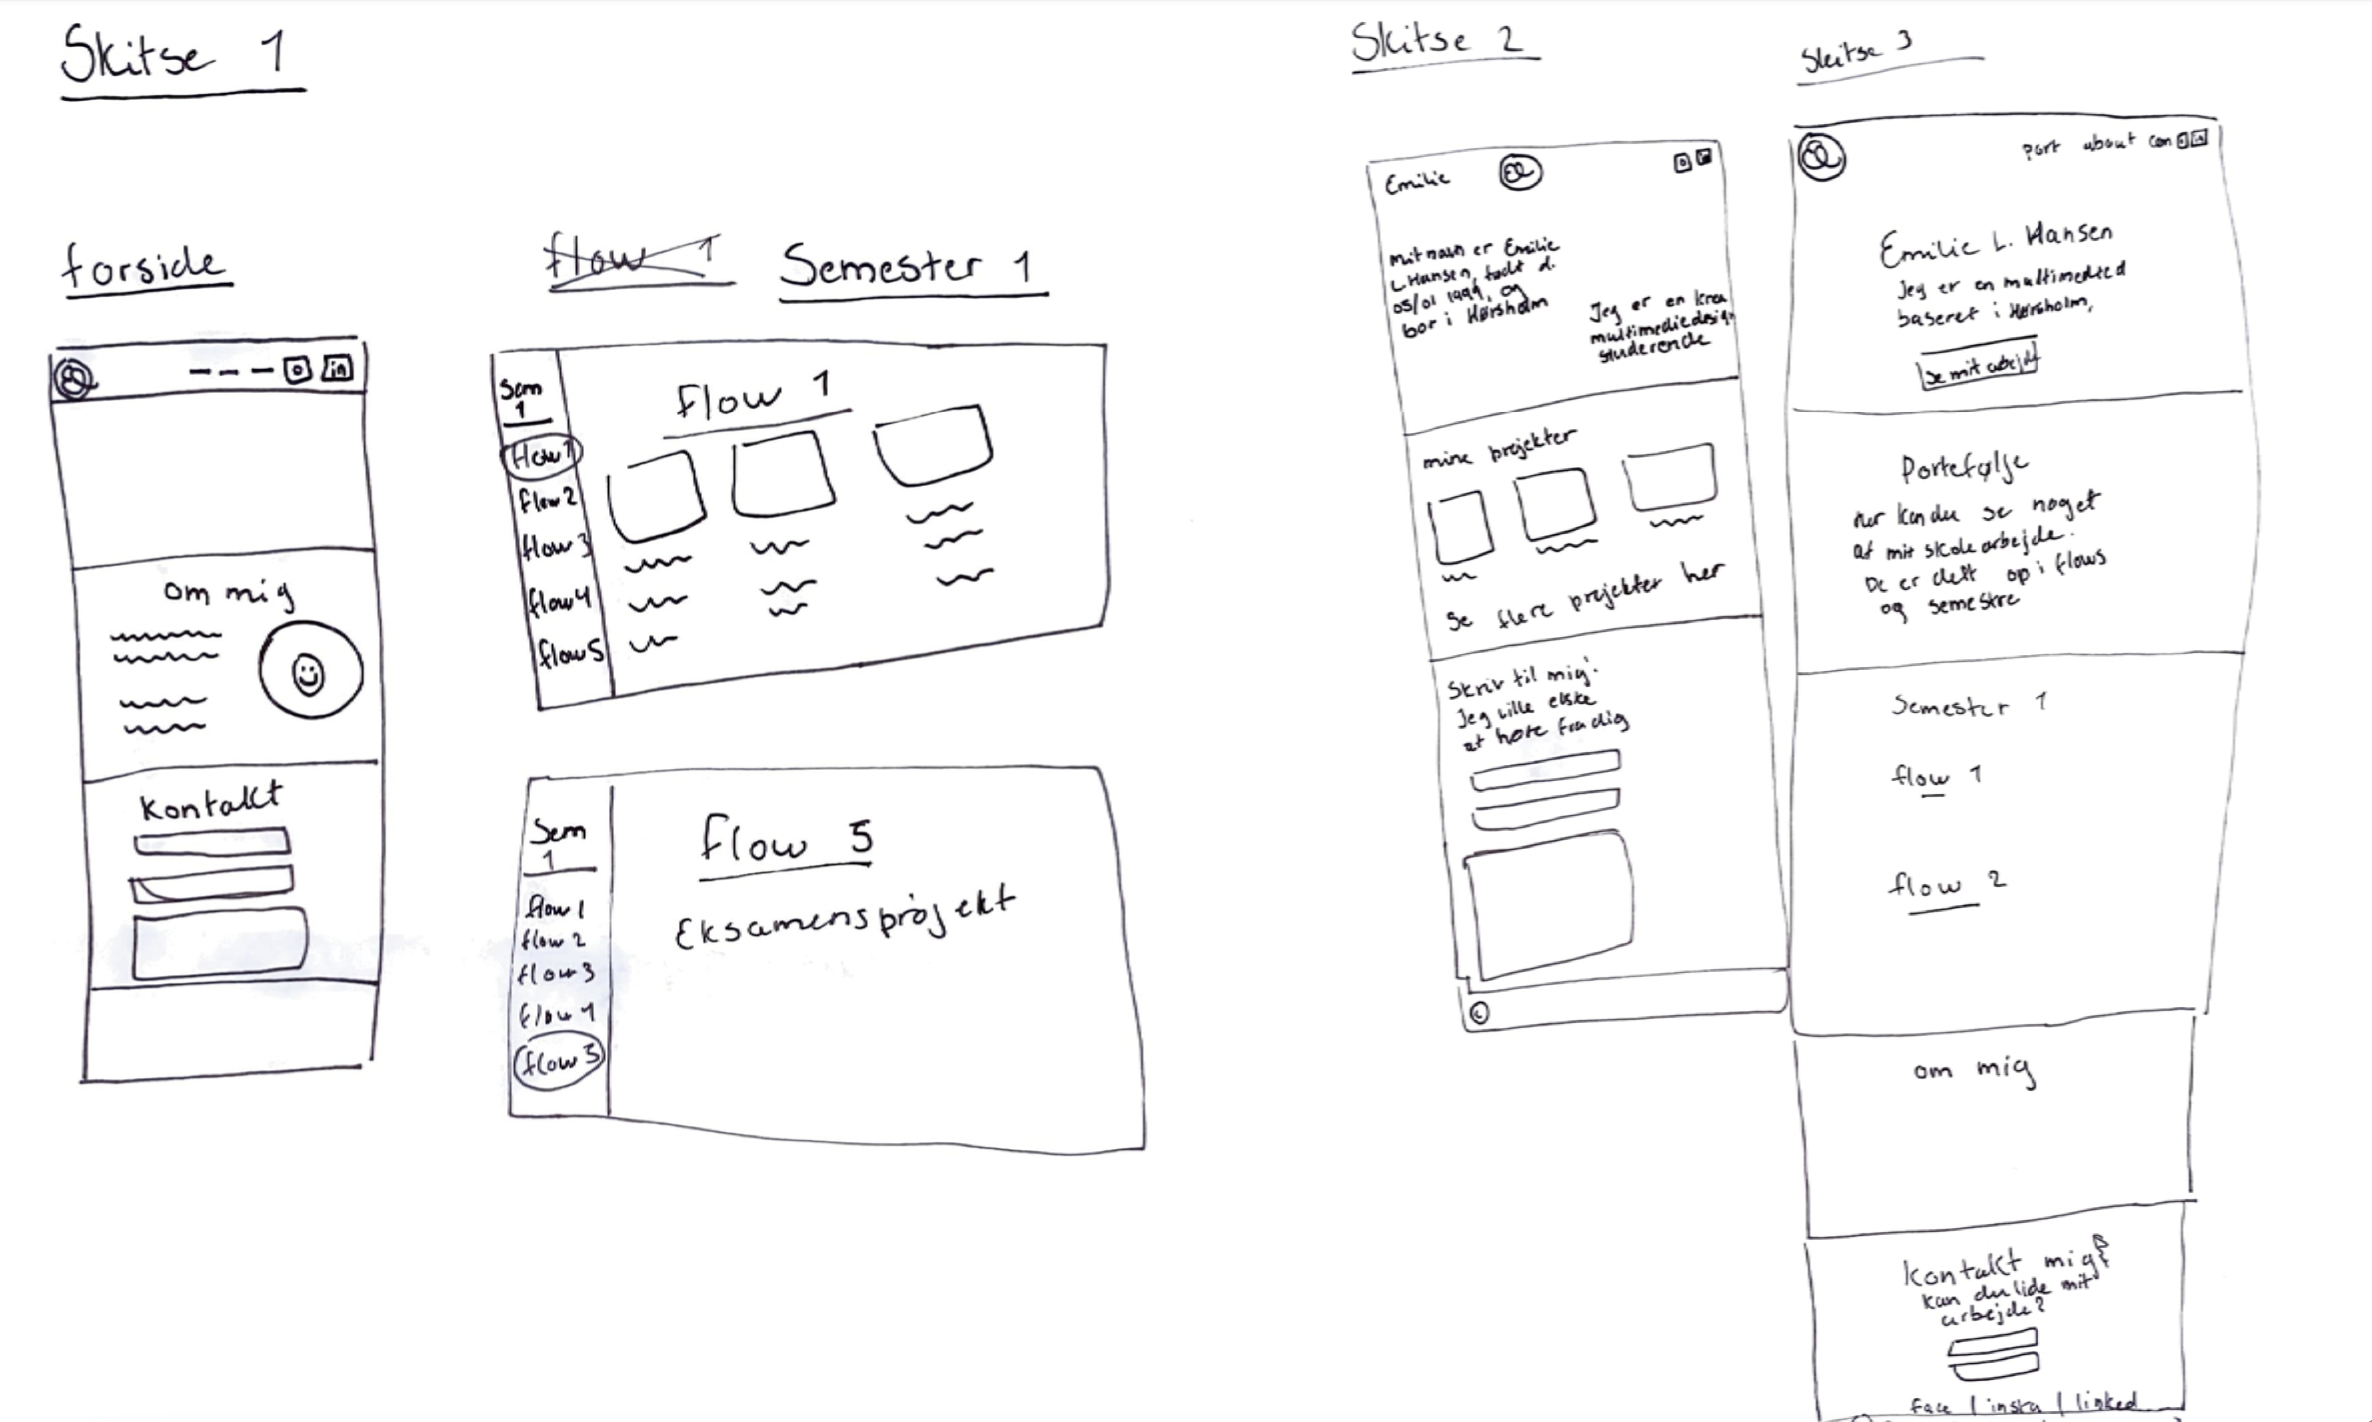 Skitse 1
forside
in
om mig
Kontakt
flow 1
Semester 1
Sem
1
flow 1
flow 2
flow 3
flow 4
flow 5
Flow 1
Sem
1
flow 1
flow 2
flow 3
flow 4
flow 5
Flow 5
Eksamensprojekt
Skitse 2
Emilie
Mit navn er Emilie
L Hansen, født d.
05/01 1999, og
bor i Hørsholm
Jeg er en krea
multimediedesign
studerende
mine projekter
Se flere projekter her
Skriv til mig:
Jeg ville elske
at høre fra dig
Skitse 3
port about con in
Emilie L. Hansen
Jeg er en multimedied
baseret i Hørsholm,
Se mit arbejde
Portefølje
Her kan du se noget
af mit skolearbejde.
De er delt op i flows
og semestre
Semester 1
flow 1
flow 2
om mig
Kontakt mig
kan du lide mit
arbejde?
Face | insta | linked